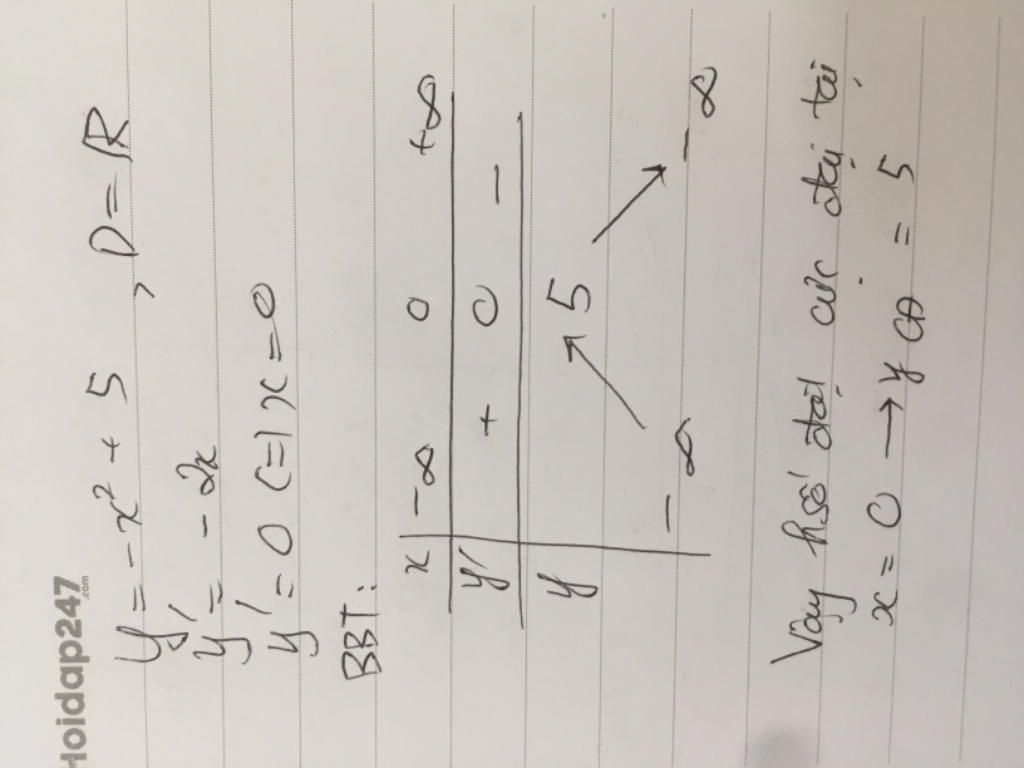 Hoidap247
.com
y = -x² + 5 , D = R
y' = -2x
y' = 0 (=) x = 0
BBT:
x -∞ 0 +∞
y' + 0 -
y -∞ ↗ 5 ↘ -∞
Vậy hsố đạt cực đại tại
x = 0 → y CĐ = 5